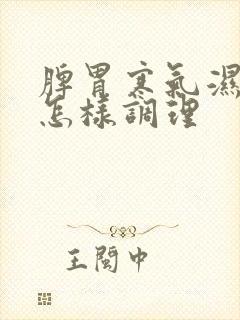 脾胃寒氣濕
怎樣調理
王閩中